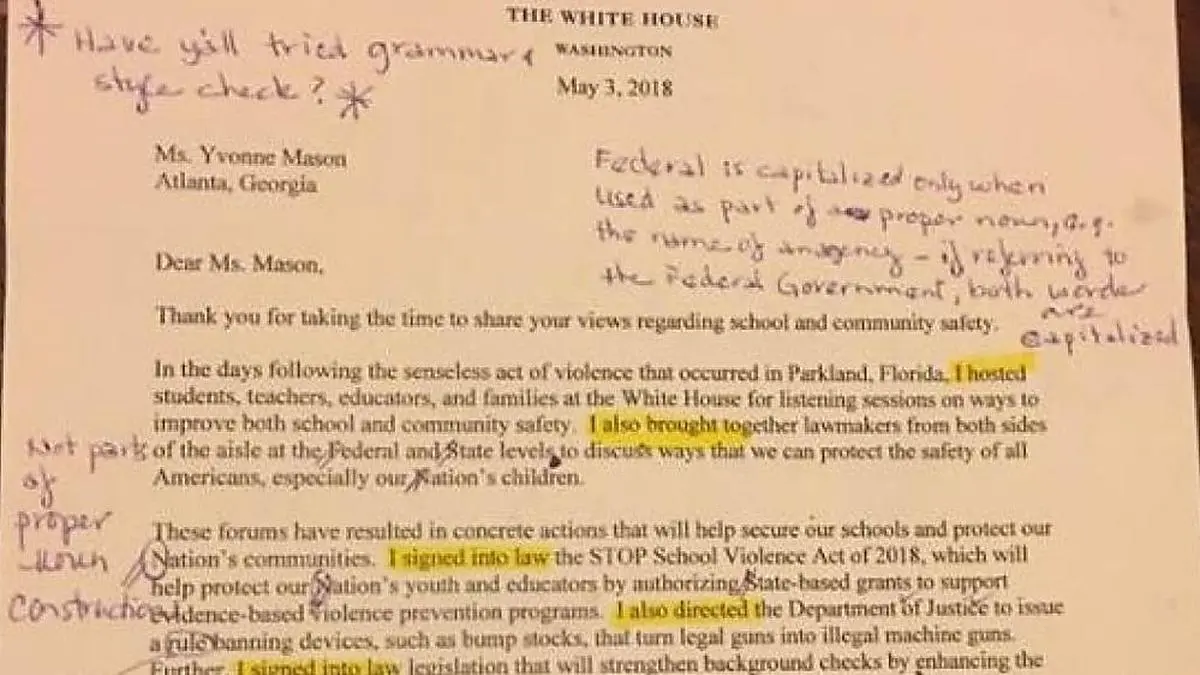 THE WHITE HOUSE
WASHINGTON
May 3, 2018
* Have y'all tried grammar &
style check? *
Ms. Yvonne Mason
Atlanta, Georgia
Federal is capitalized only when
used as part of proper noun, e.g.
the name of an agency - if referring to
the Federal Government, both words
are
capitalized
Dear Ms. Mason,
Thank you for taking the time to share your views regarding school and community safety.
In the days following the senseless act of violence that occurred in Parkland, Florida, I hosted
students, teachers, educators, and families at the White House for listening sessions on ways to
improve both school and community safety. I also brought together lawmakers from both sides
of the aisle at the Federal and State levels to discuss ways that we can protect the safety of all
Americans, especially our Nation's children.
Not part
of
proper
noun
construction
These forums have resulted in concrete actions that will help secure our schools and protect our
Nation's communities. I signed into law the STOP School Violence Act of 2018, which will
help protect our Nation's youth and educators by authorizing State-based grants to support
evidence-based violence prevention programs. I also directed the Department of Justice to issue
a rule banning devices, such as bump stocks, that turn legal guns into illegal machine guns.
Further, I signed into law legislation that will strengthen background checks by enhancing the